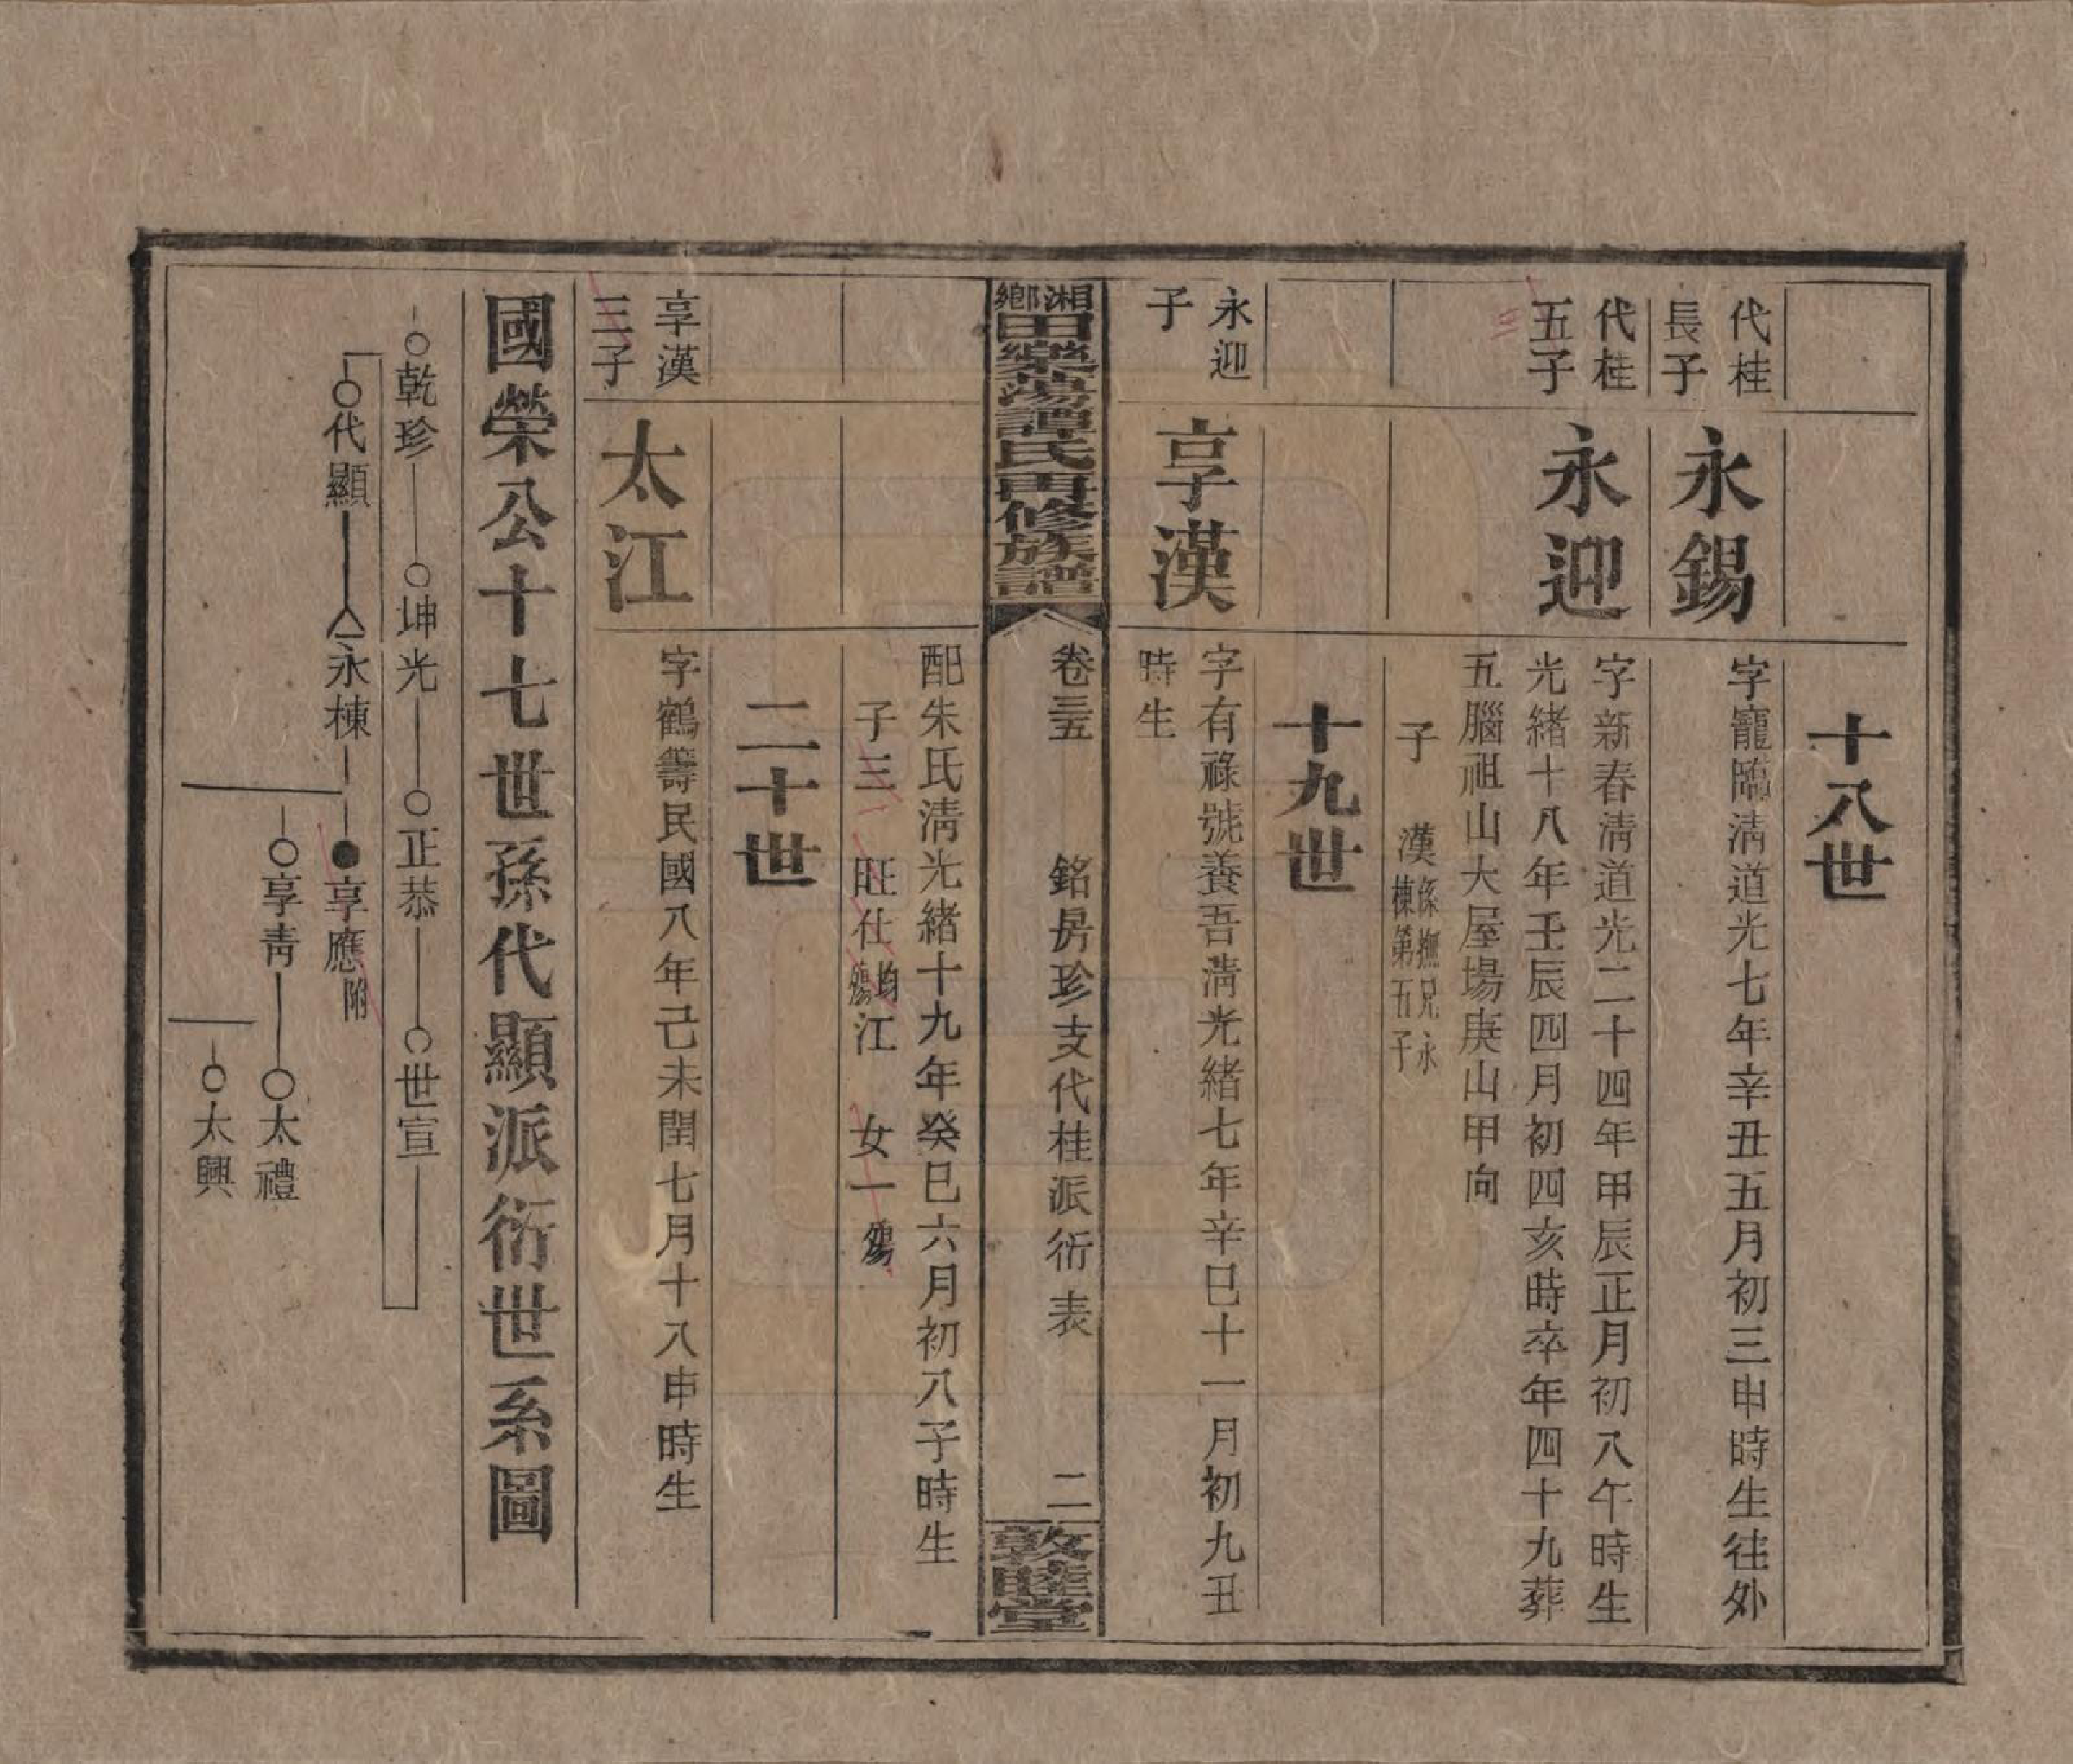 十八世
代桂
長子
永錫
字寵臨清道光七年辛丑五月初三申時生往外
代桂
五子
永迎
字新春清道光二十四年甲辰正月初八午時生
光緒十八年壬辰四月初四亥時卒年四十九葬
五腦祖山大屋場庚山甲向
子 漢係撫兄永
棟第五子
十九世
永迎
子
享漢
字有祿號養吾清光緒七年辛巳十一月初九丑
時生
湘鄉田樂蕩譚氏再修族譜
卷三五 銘房珍支代桂派衍表 二
敦睦堂
配朱氏清光緒十九年癸巳六月初八子時生
子三 旺仕均殤江 女一殤
二十世
享漢
三子
太江
字鶴籌民國八年己未閏七月十八申時生
國榮公十七世孫代顯派衍世系圖
乾珍 坤光 正恭 世宣
代顯 永棟 享應附
享青 太禮
太興